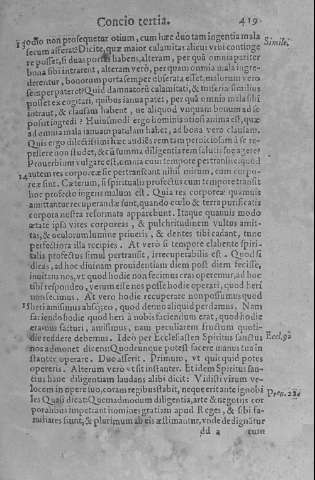 Concio tertia. 419
13 quando non prosequar otium, cum hæc duo tam ingentia mala Simile.
secum afferat? Dicite, quæ maior calamitas alicui vrbi continge
re posset, si duas portas habens, alteram, per quã omnia pariter
bona sibi intrarent, alteram verò, per quam omnia mala ingre-
derentur, bonorum porta semper obserata esset, malorum vero
semper pateret? Quid damnatorũ calamitati, & miseriæ similius
posset excogitari, quibus ianua patet, per quã omnis mala sibi
intraut, & clausam habent, ne aliquod vnquam bonum ad se
possit ingredi? Huiusmodi ergo hominis otiosi anima est, quæ
ad omnia mala ianuam patulam habet, ad bona vero clausam.
Quis ergo
Prouerbium vulgare est, omnia cum tempore pertransire, quod
14 autem res corporeæ sic pertranseant nihil mirum, cum corpo-
reæ sint. Cæterum, si spiritualis profectus cum tempore transit
hoc profecto ingens malum est. Quia res corporeæ quamuis
amittantur recuperandæ sunt, quando cœlo & terra purificatis
corpora nostra reformata apparebunt. Itaque quamuis modo
ætate ipsa vires corporeas, & pulchritudinem vultus amit-
tas, & oculorum lumine priueris, & dentes tibi cadant, tunc
perfectiora illa recipies. At vero si tempore elabente spiri-
talis profectus simul pertransit, irrecuperabilis est. Quod si
dicas, ad hoc diuinam prouidentiam diem post diem fecisse,
inuitam nos, vt quod hodie non fecimus cras operemur, ad hoc
tibi respondeo, verum esse nos posse hodie operari, quod heri
non fecimus. At vero hodie recuperare non possumus quod
15 heri amisimus absq; eo, quod denuo aliquid perdamus. Nam
faciendo hodie quod heri à nobis faciendum erat, quod hodie
eramus facturi, amisimus, nam peculiarem fructum quoti-
die reddere debemus. Ideò per Ecclesiasten Spiritus sanctus Eccl. 9.
nos admonet dicens: Quodcunque potest facere manus tua in
stanter operare. Duo asserit. Primum, vt quicquid potes
opereris. Alterum vero vt sis instanter. Et idem Spiritus san-
ctus hanc diligentiam laudans alibi dicit: Vidisti virum ve-
locem in opere suo, coram regibus stabit, neque erit ante ignobi Prou. 22.
les. Quasi dicat: Quemadmodum diligentia, arte & negotiis cor
poralibus impetrant homines gratiam apud Reges, & sibi fa-
miliares sunt, & plurimum ab eis æstimantur, vnde dedignatur
dd 2 cum